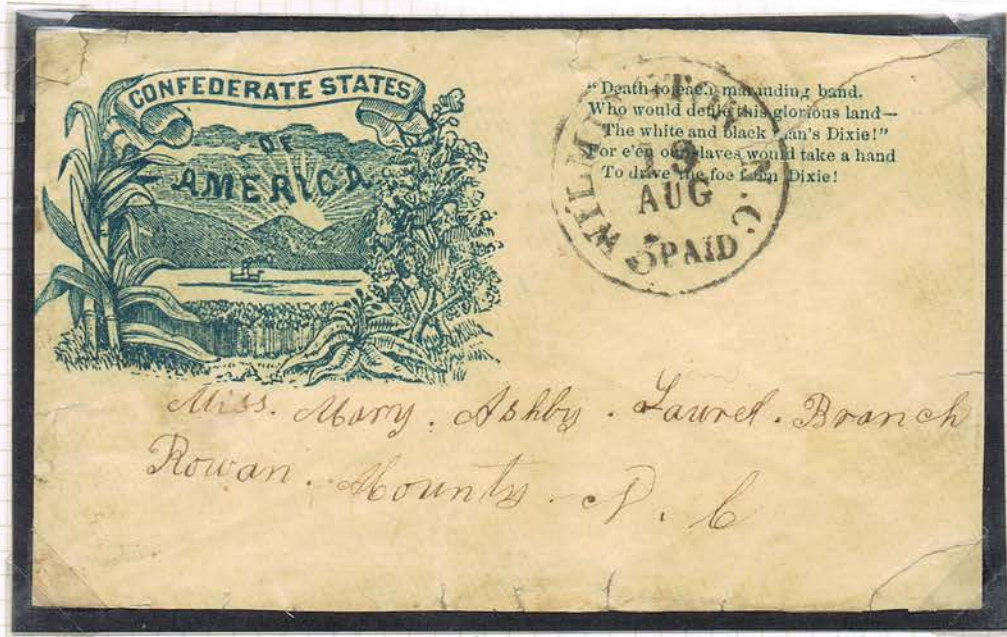 CONFEDERATE STATES
OF
AMERICA
"Death to each marauding band,
Who would defile this glorious land—
The white and black man's Dixie!"
For e'en our slaves would take a hand
To drive the foe from Dixie!
WILMINGTON N.C.
AUG
5 PAID
Miss. Mary. Ashby. Laurel. Branch
Rowan. County. N. C